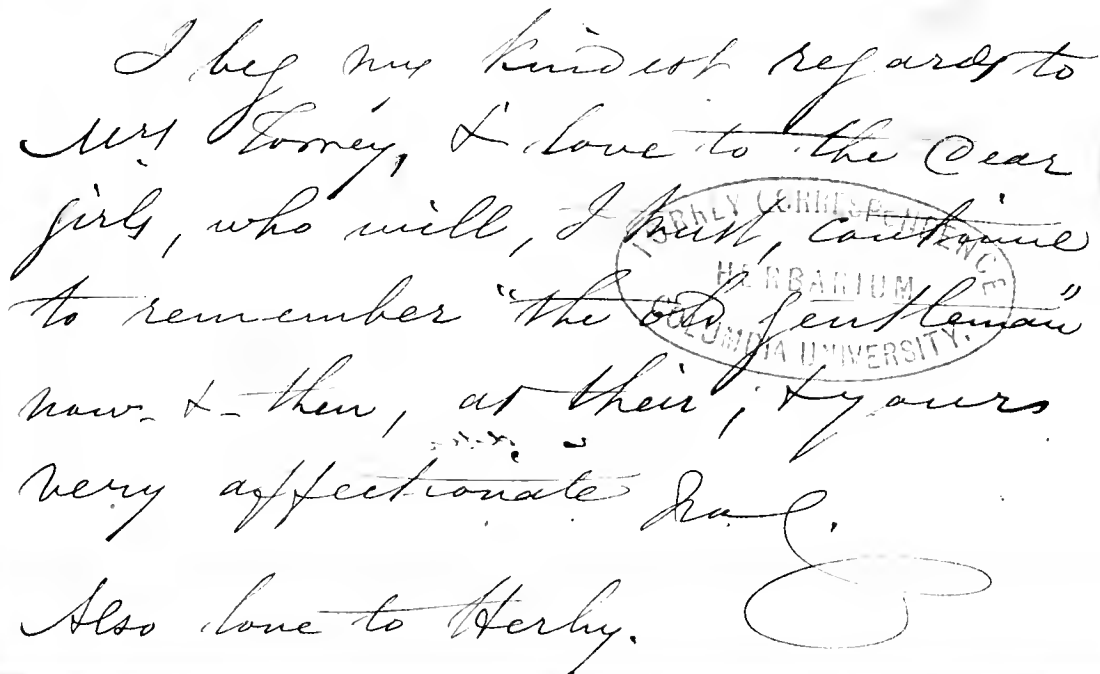 I beg my kindest regards to
Mrs Torrey, & love to the dear
girls, who will, I trust, continue
to remember "the old gentleman"
now - & - then, as their, & yours
very affectionate
Also love to Herby.
TORREY CORRESPONDENCE
HERBARIUM
COLUMBIA UNIVERSITY.